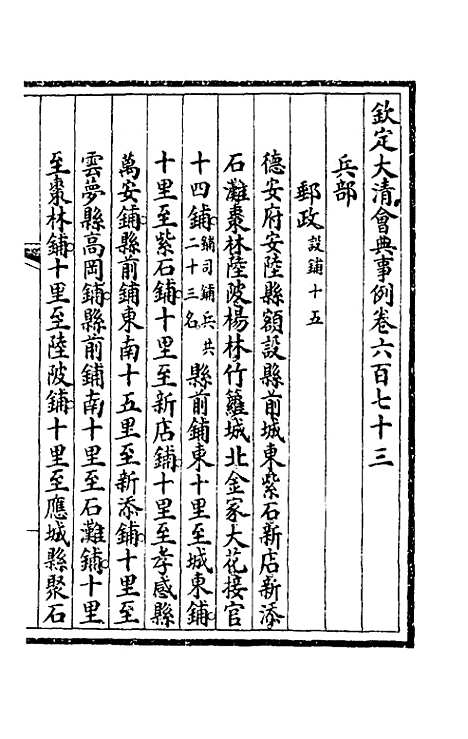 欽定大清會典事例卷六百七十三
兵部
郵政設鋪十五
德安府安陸縣額設縣前城東紫石新店新添
石灘棗林陸陂楊林竹籬城北金家大花接官
十四鋪鋪司鋪兵共二十三名縣前鋪東十里至城東鋪
十里至紫石鋪十里至新店鋪十里至孝感縣
萬安鋪縣前鋪東南十五里至新添鋪十里至
雲夢縣高岡鋪縣前鋪南十里至石灘鋪十里
至棗林鋪十里至陸陂鋪十里至應城縣聚石